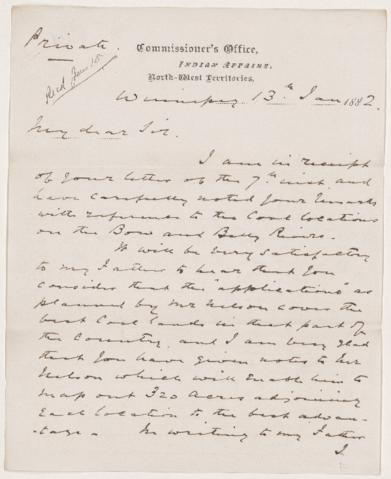 Private.
Commissioner's Office,
Indian Affairs,
North-West Territories.
Winnipeg 13th Jan 1882.
My dear Sir.
I am in receipt
of your letter of the 7th inst. and
have carefully noted your remarks
with reference to the Coal locations
on the Bow and Belly Rivers.
It will be very satisfactory
to my Father to hear that you
consider that the "applications" as
planned by Mr Nelson cover the
best Coal lands in that part of
the Country, and I am very glad
that you have given notes to Mr
Nelson which will enable him to
map out 320 acres adjoining
each location to the best advan-
-tage. In writing to my Father
I